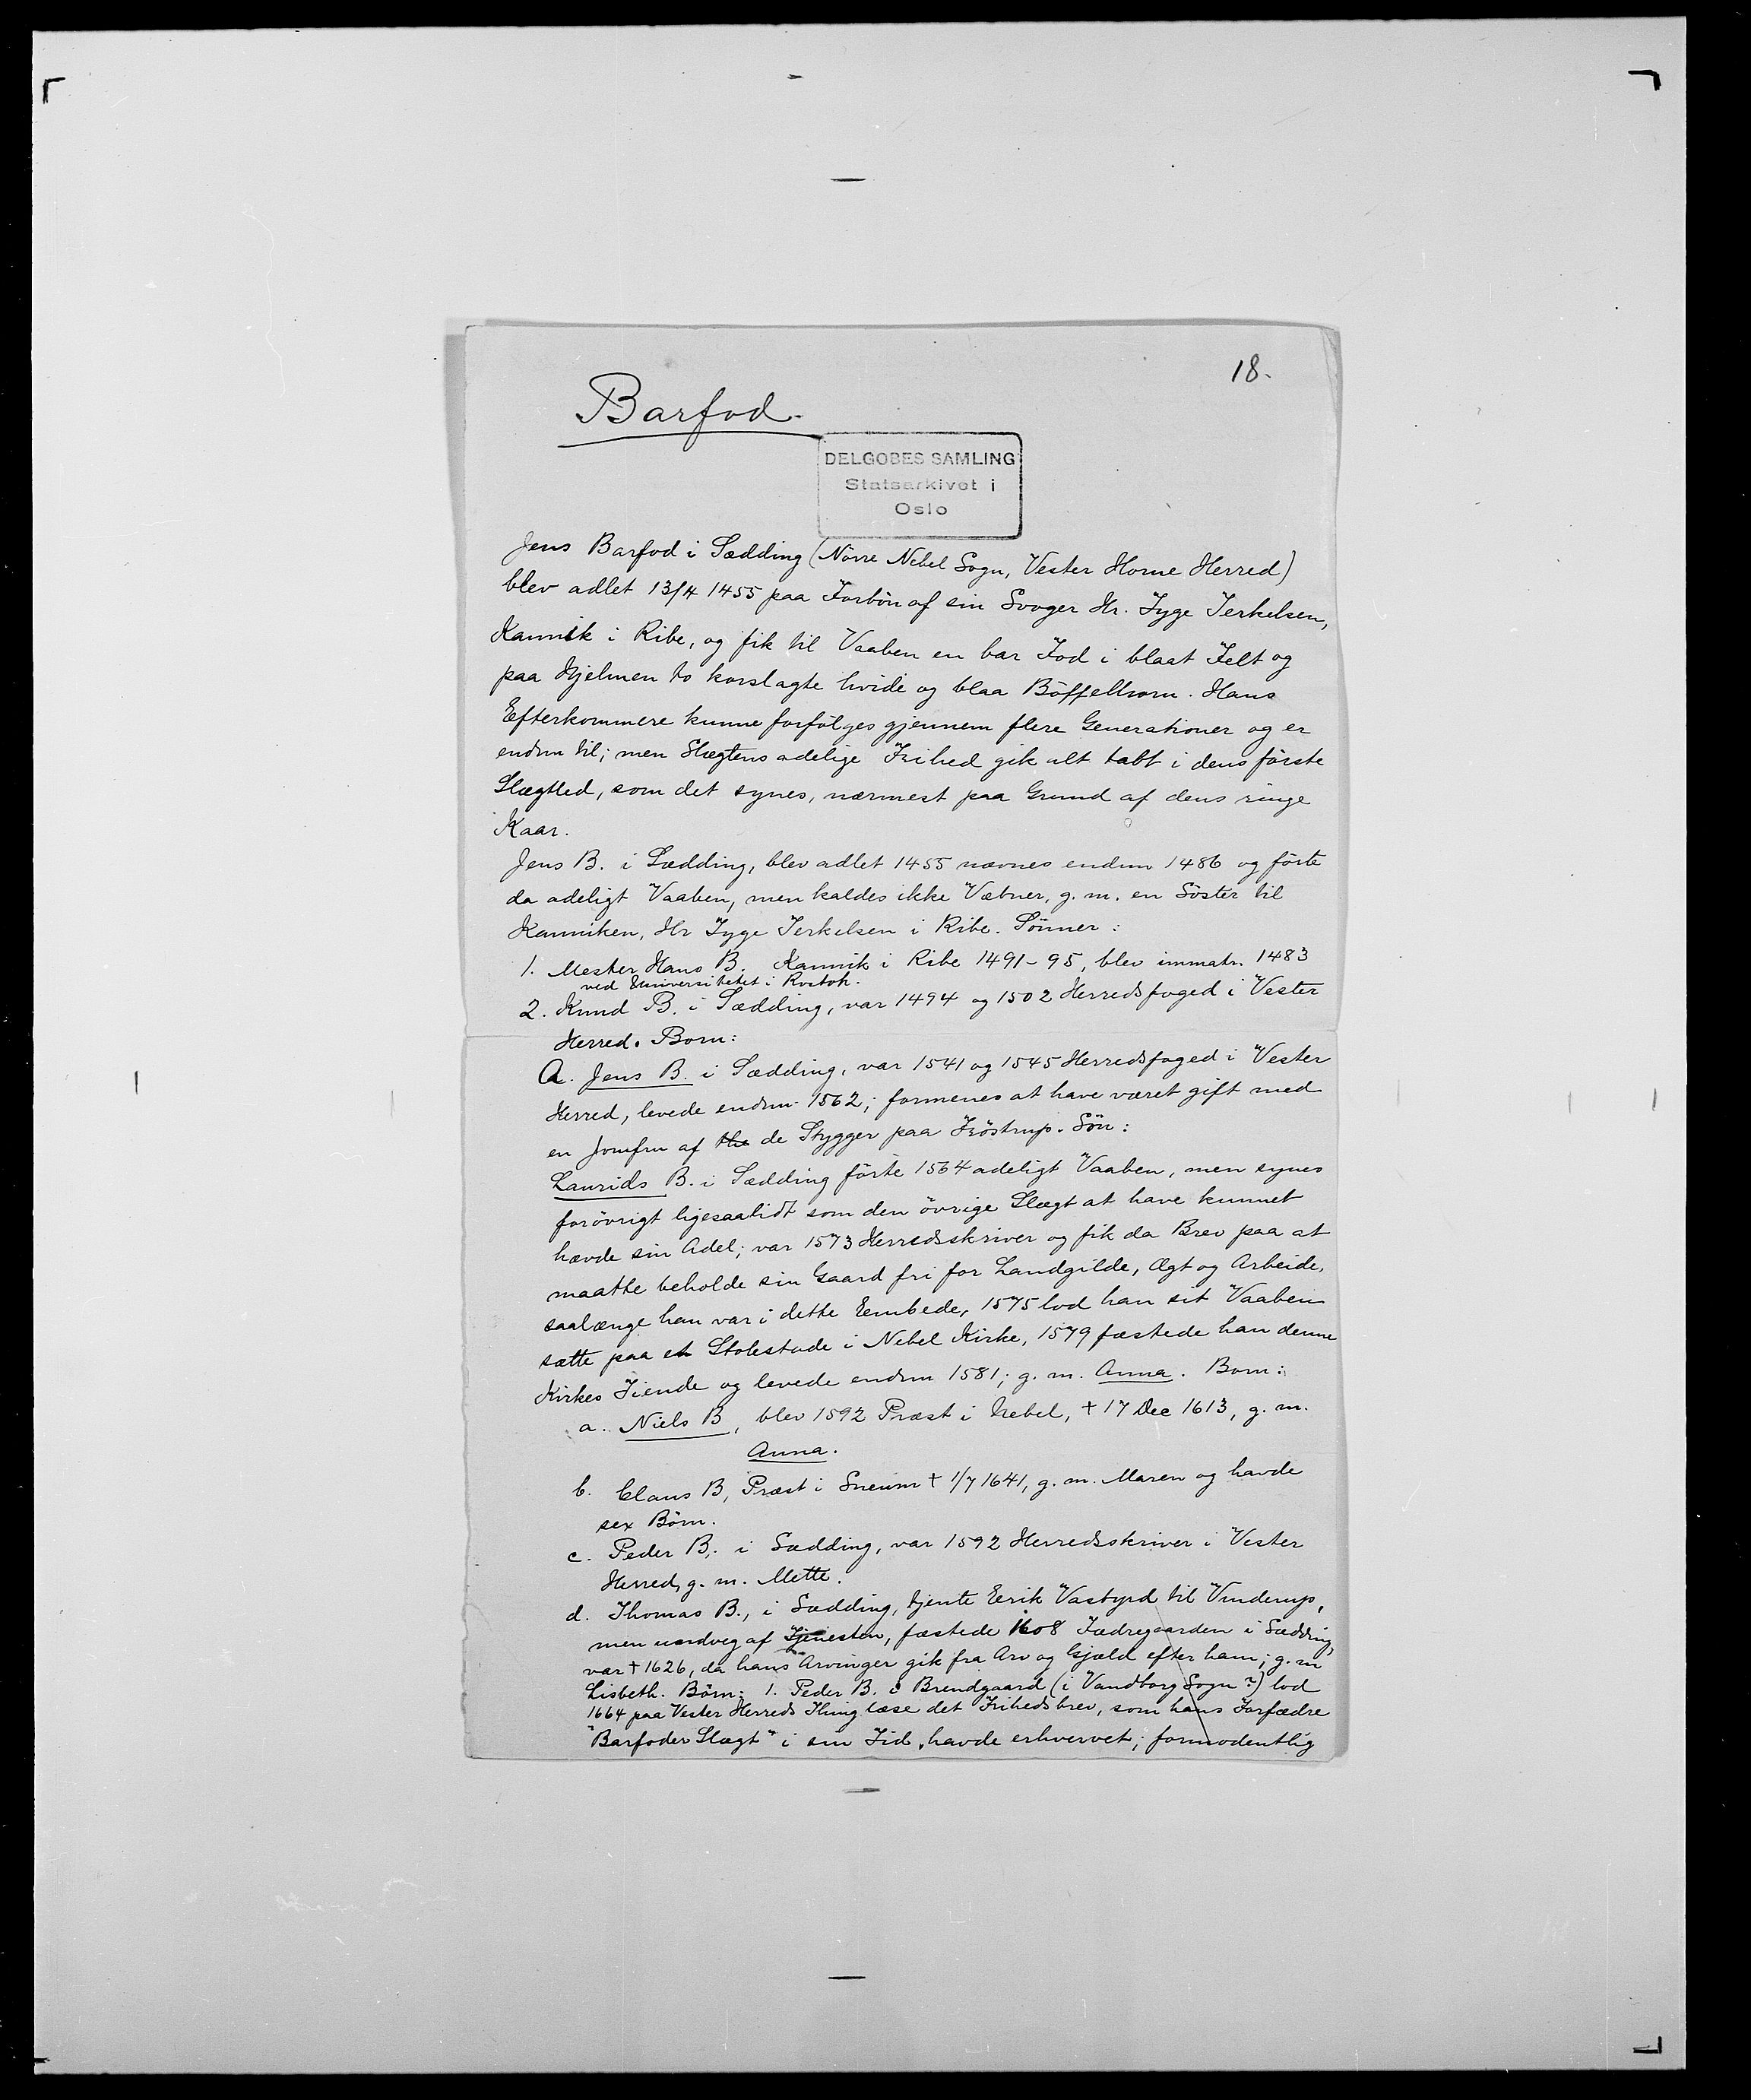 18.
Barfod.
DELGOBES SAMLING
Statsarkivet i
Oslo
Jens Barfod i Sædding (Nörre Nebel Sogn, Vester Horne Herred)
blev adlet 13/4 1455 paa Forbön af sin Svoger Hr. Tyge Terkelsen,
Kannik i Ribe, og fik til Vaaben en bar Fod i blaat Felt og
paa Hjelmen to korslagte hvide og blaa Böffelhorn. Hans
Efterkommere kunne forfölges gjennem flere Generationer og er
endnu til; men Slægtens adelige Frihed gik alt tabt i dens förste
Slægtled, som det synes, nærmest paa Grund af dens ringe
Kaar.
Jens B. i Sædding, blev adlet 1455 nævnes endnu 1486 og förte
da adeligt Vaaben, men kaldes ikke Væbner, g. m. en Söster til
Kanniken, Hr Tyge Terkelsen i Ribe. Sönner:
1. Mester Hans B. Kannik i Ribe 1491-95, blev immatr. 1483
ved Universitetet i Rostok.
2. Knud B. i Sædding, var 1494 og 1502 Herredsfoged i Vester
Herred. Born:
A. Jens B. i Sædding, var 1541 og 1545 Herredsfoged i Vester
Herred, levede endnu 1562; formenes at have været gift med
en Jomfru af the de Stygger paa Fröstrup. Sön:
Laurids B. i Sædding förte 1564 adeligt Vaaben, men synes
forövrigt ligesaalidt som den övrige Slægt at have kunnet
hævde sin Adel; var 1573 Herredsskriver og fik da Brev paa at
maatte beholde sin Gaard fri for Landgilde, Ægt og Arbeide,
saalænge han var i dette Eembede, 1575 lod han sit Vaaben
sætte paa et Stolestade i Nebel Kirke, 1579 fæstede han denne
Kirkes Tiende og levede endnu 1581; g. m. Anna. Born:
a. Niels B, blev 1592 Præst i Nebel, † 17 Dec 1613, g. m.
Anna.
b. Claus B, Præst i Sneum † 1/7 1641, g. m. Maren og havde
sex Börn.
c. Peder B; i Sædding, var 1592 Herredsskriver i Vester
Herred, g. m. Mette.
d. Thomas B., i Sædding, tjente Eerik Vastyrd til Vinderup,
men undveg af Tjenesten, fæstede 1608 Fædregaarden i Sædding,
var † 1626, da hans Arvinger gik fra Arv og Gjæld efter ham; g. m
Lisbeth. Börn: 1. Peder B. i Brendgaard (i Vandborg Sogn?) lod
1664 paa Vester Herreds Thing læse det Frihedsbrev, som hans Forfædre
"Barfoder Slægt" i sin Tid havde erhvervet; formodentlig